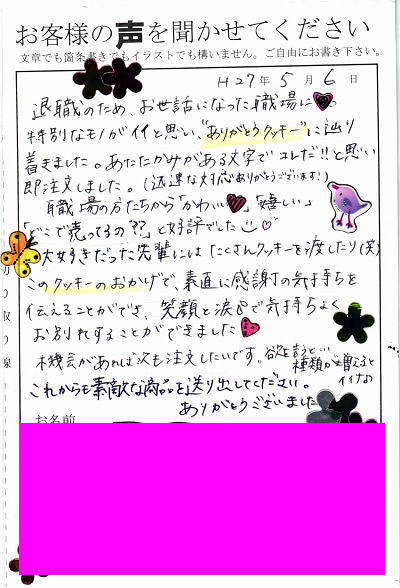 お客様の声を聞かせてください
文章でも箇条書きでもイラストでも構いません。ご自由にお書き下さい。
H27年5月6日
退職のため、お世話になった職場に。
特別なモノがイイと思い、"ありがとうクッキー"に辿り
着きました。あたたかみがある文字でコレだ!!と思い
即注文しました。(迅速な対応ありがとうございます!)
職場の方たちから「かわいい」「嬉しい」
「どこで売ってるの??」と好評でした♡
大好きだった先輩にはたくさんクッキーを渡したり(笑)
このクッキーのおかげで、素直に感謝の気持ちを
伝えることができ、笑顔と涙で気持ちよく
お別れすることができました
機会があれば次も注文したいです。欲を言うと…
種類が増えると
イイナ♪
これからも素敵な商品を送り出してください。
ありがとうございました
お名前
切り取り線